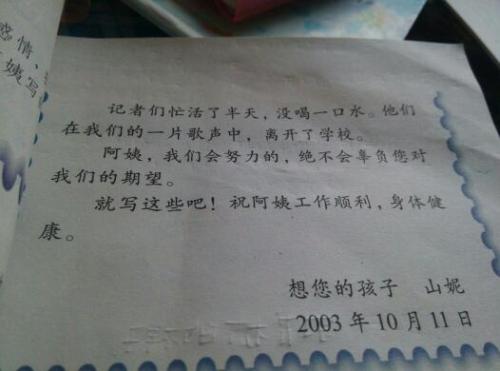 感情、
姨写
记者们忙活了半天，没喝一口水。他们
在我们的一片歌声中，离开了学校。
阿姨，我们会努力的，绝不会辜负您对
我们的期望。
就写这些吧！祝阿姨工作顺利，身体健
康。
想您的孩子 山妮
2003年10月11日